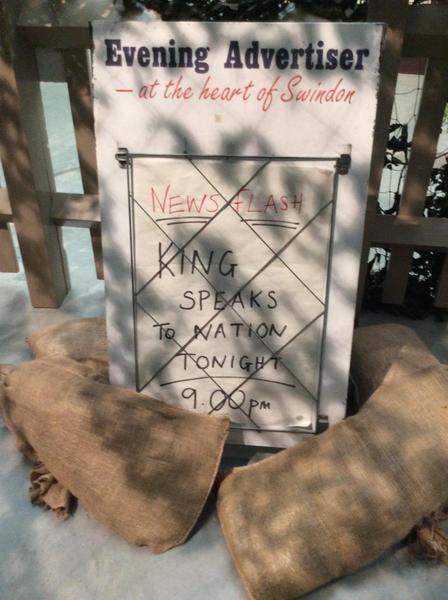 Evening Advertiser
— at the heart of Swindon
NEWS FLASH
KING
SPEAKS
TO NATION
TONIGHT
9.00pm